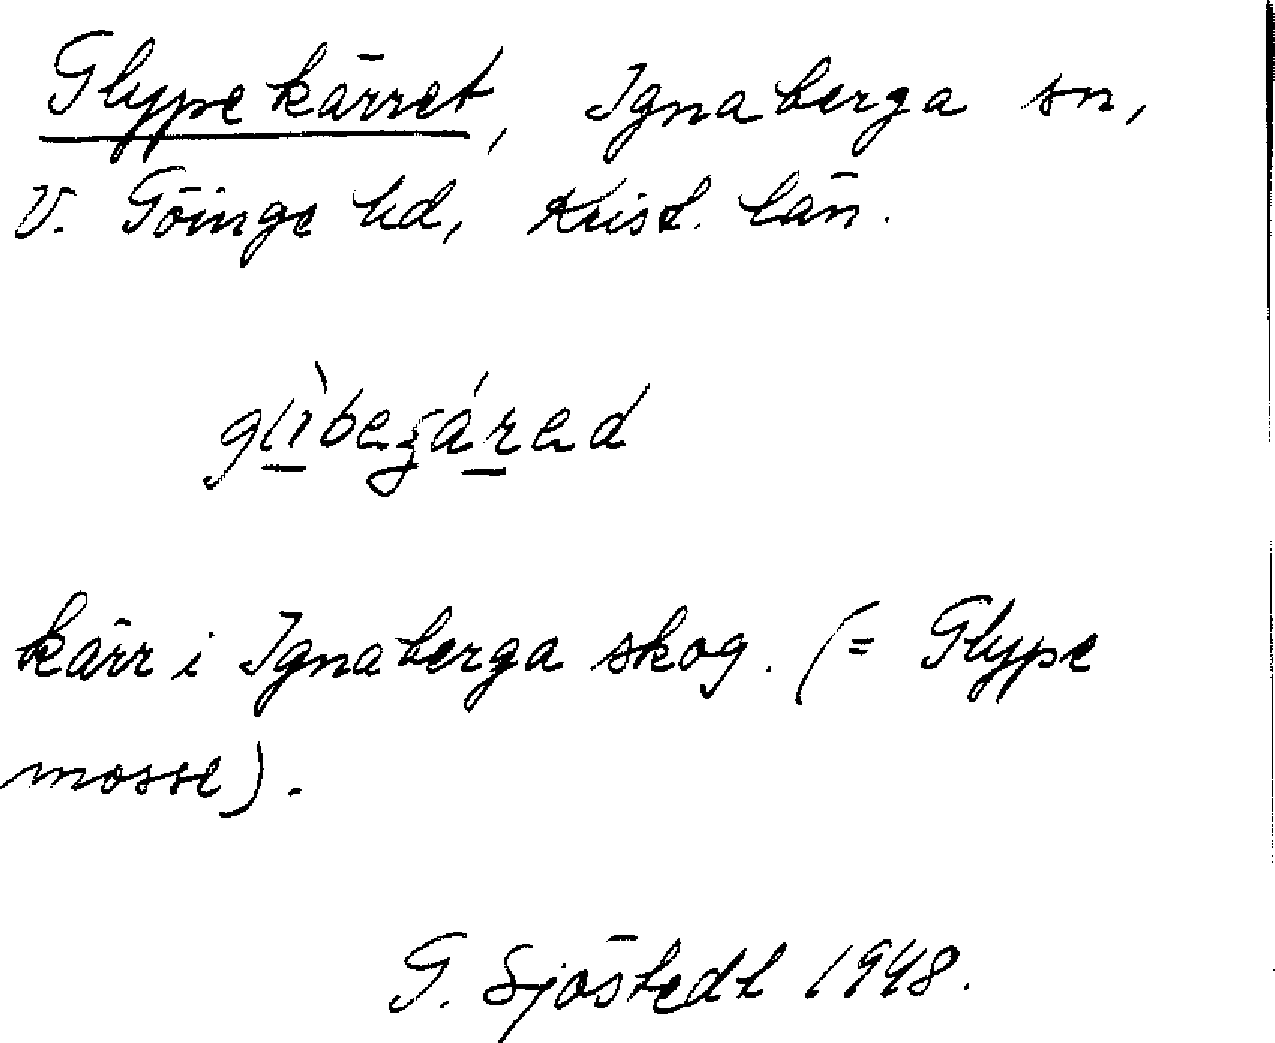 Glypekärret, Ignaberga sn,
V. Göinge hd, Krist. län.
kärr i Ignaberga skog. (= Glype
mosse).
G. Sjöstedt 1948.